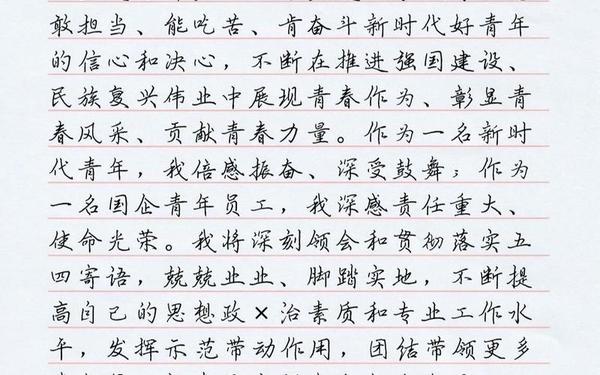 敢担当、能吃苦、肯奋斗新时代好青年
的信心和决心，不断在推进强国建设、
民族复兴伟业中展现青春作为、彰显青
春风采、贡献青春力量。作为一名新时
代青年，我倍感振奋、深受鼓舞；作为
一名国企青年员工，我深感责任重大、
使命光荣。我将深刻领会和贯彻落实五
四寄语，兢兢业业、脚踏实地，不断提
高自己的思想政×治素质和专业工作水
平，发挥示范带动作用，团结带领更多